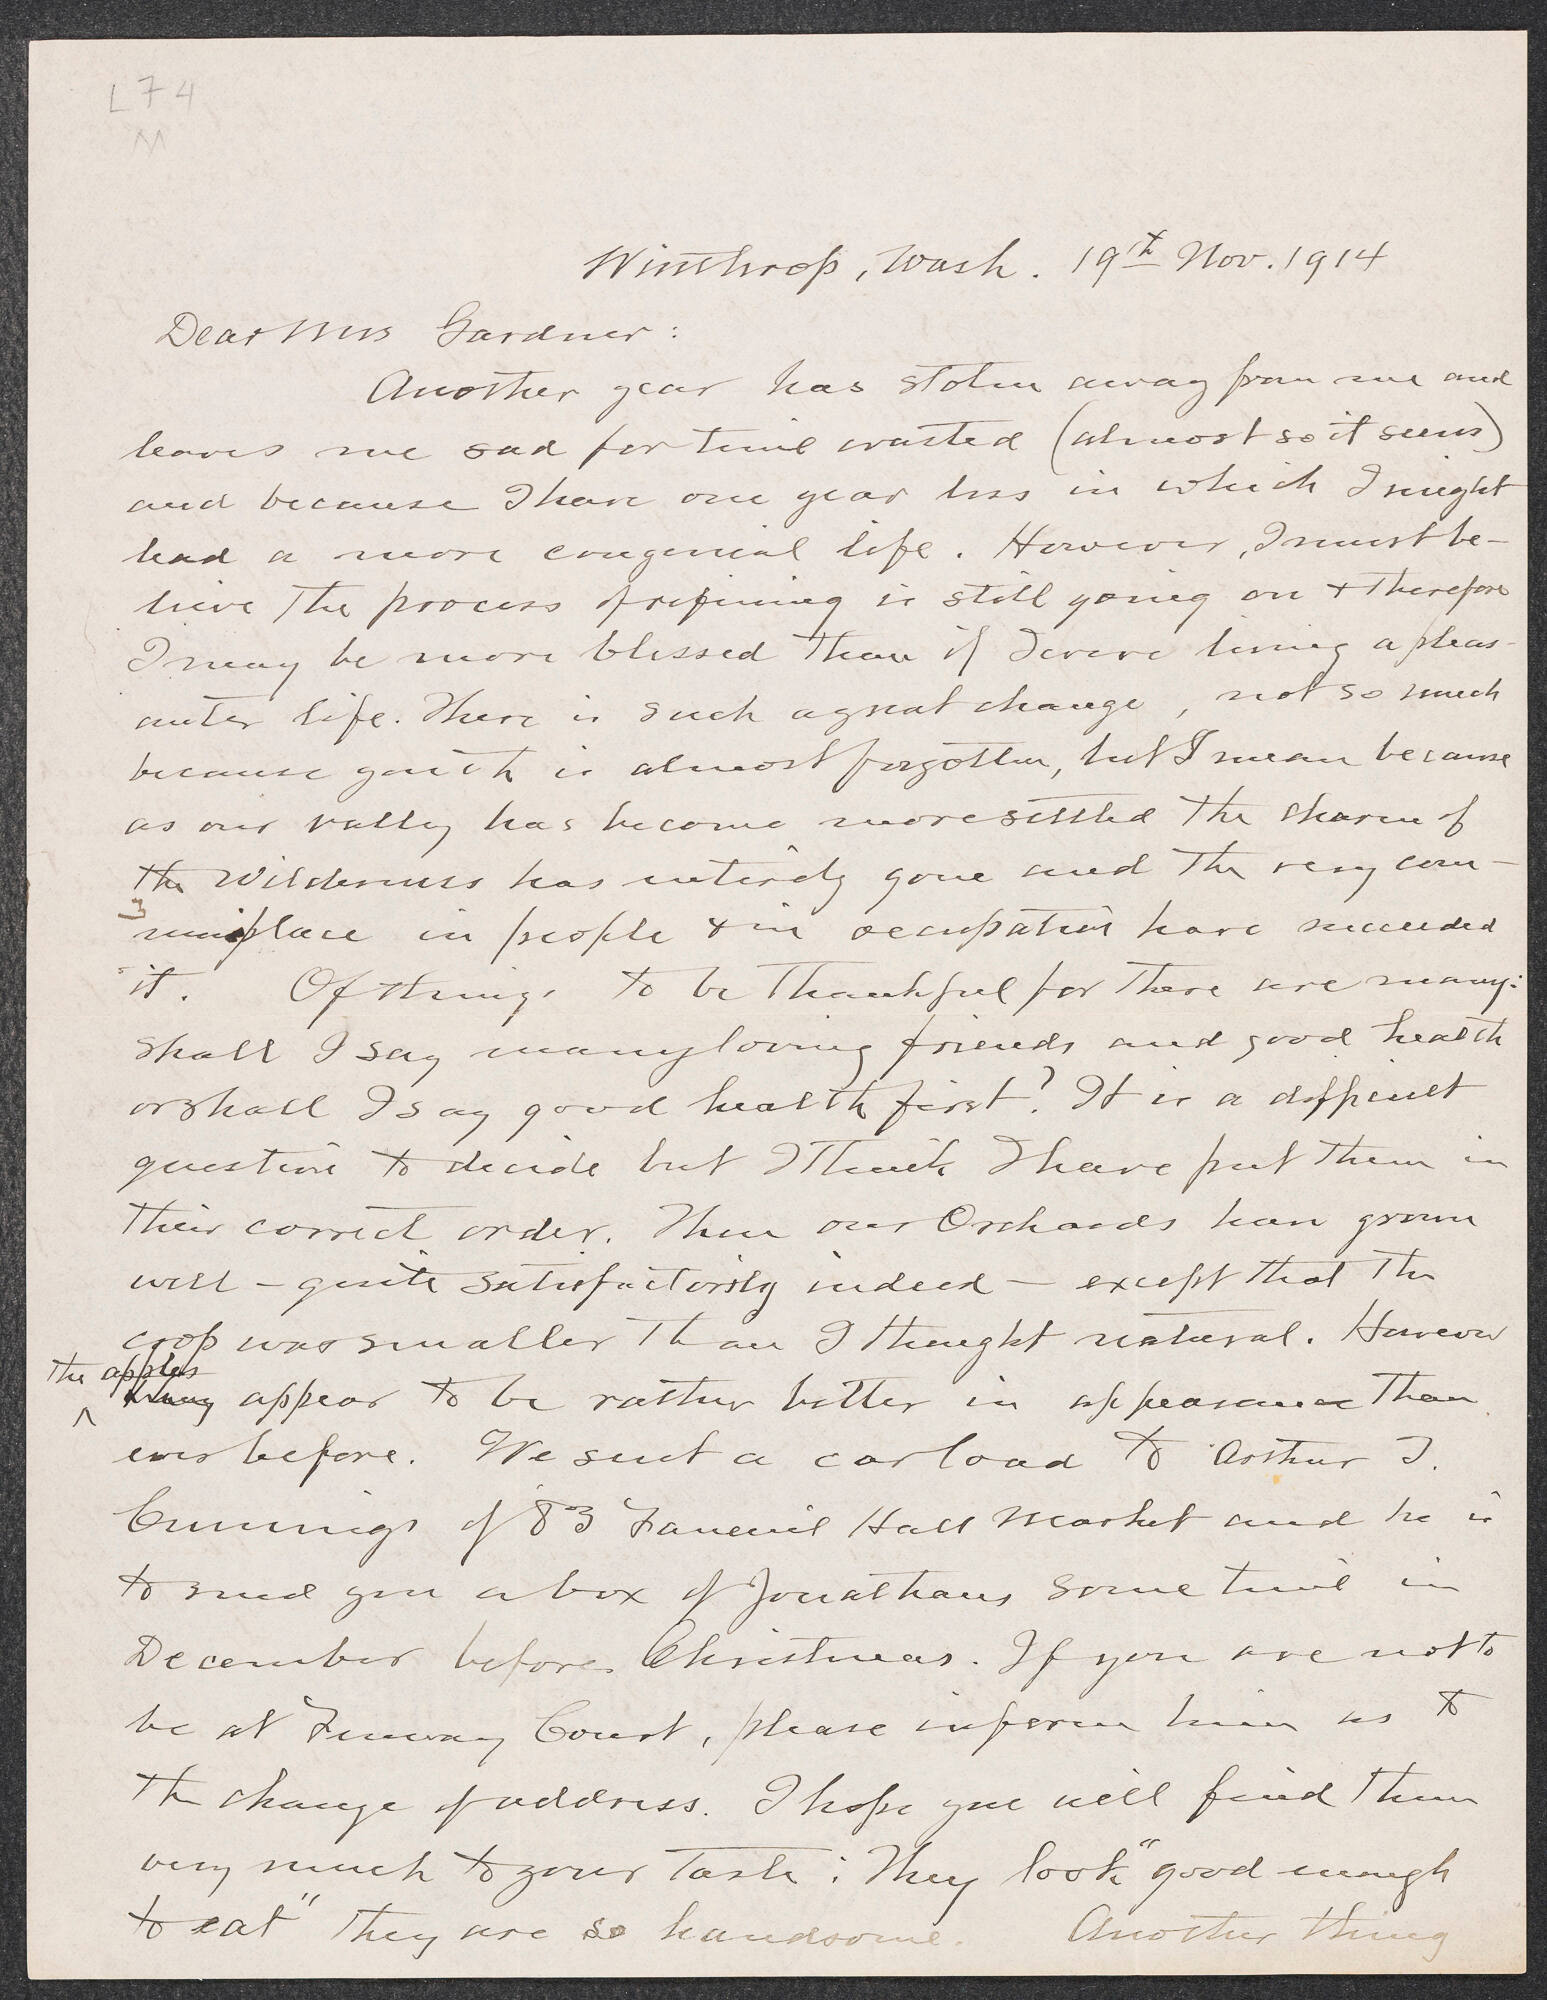 L74
M
Winthrop, Wash. 19th Nov. 1914
Dear Mrs Gardner:
Another year has stolen away from me and
leaves me sad for time wasted (almost so it seems)
and because I have one year less in which I might
lead a more congenial life. However, I must be-
lieve the process of refining is still going on & therefore
I may be more blessed than if I were living a pleas-
anter life. There is such a great change, not so much
because youth is almost forgotten, but I mean because
as our valley has become more settled the charm of
the Wilderness has entirely gone and the very com-
monplace in people & in occupation have succeeded
it. Of things to be thankful for there are many:
shall I say many loving friends and good health
or shall I say good health first? It is a difficult
question to decide but I think I have put them in
their correct order. Then our Orchards have grown
well – quite satisfactorily indeed – except that the
crop was smaller than I thought natural. However
the apples
they appear to be rather better in appearance than
ever before. We sent a carload to Arthur I.
Cummings of 83 Faneuil Hall Market and he is
to send you a box of Jonathans some time in
December before Christmas. If you are not to
be at Fenway Court, please inform him as to
the change of address. I hope you will find them
very much to your taste: They look "good enough
to eat" they are so handsome. Another thing